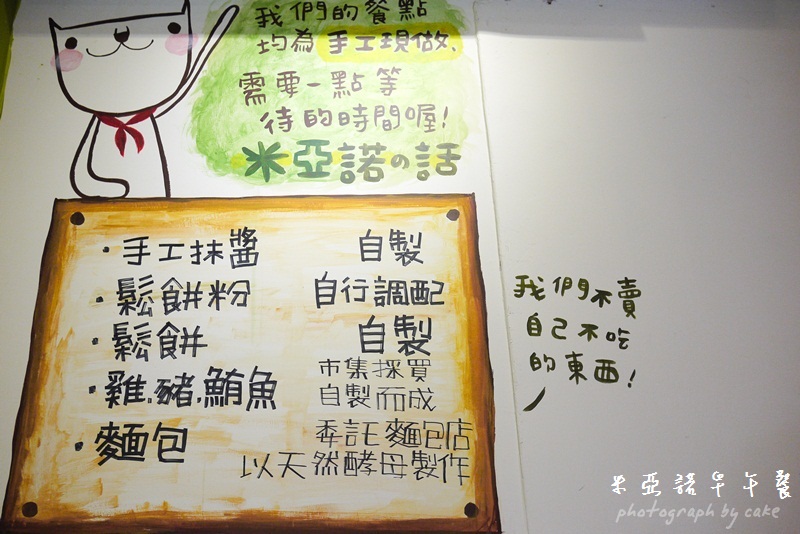 我們的餐點
均為手工現做,
需要一點等
待的時間喔!
米亞諾の話
・手工抹醬 自製
・鬆餅粉 自行調配
・鬆餅 自製
・雞.豬.鮪魚 市集採買
自製而成
・麵包 委託麵包店
以天然酵母製作
我們不賣
自己不吃
的東西!
米亞諾早午餐
photograph by cake